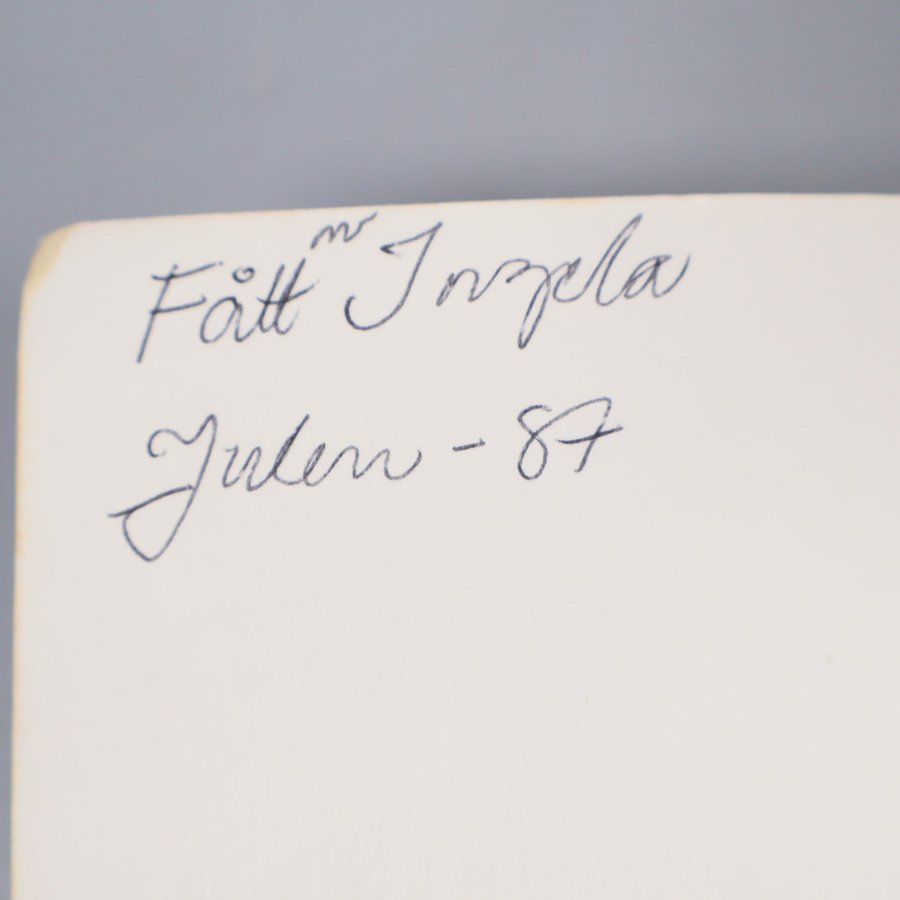 Fått av Ingela
Julen - 87